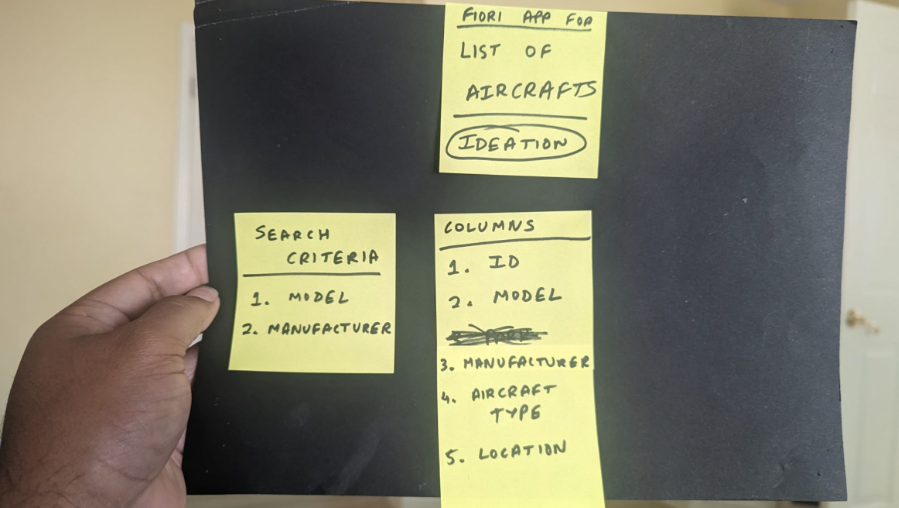 FIORI APP FOR
LIST OF
AIRCRAFTS
IDEATION
SEARCH
CRITERIA
1. MODEL
2. MANUFACTURER
COLUMNS
1. ID
2. MODEL
3. MANUFACTURER
4. AIRCRAFT
TYPE
5. LOCATION